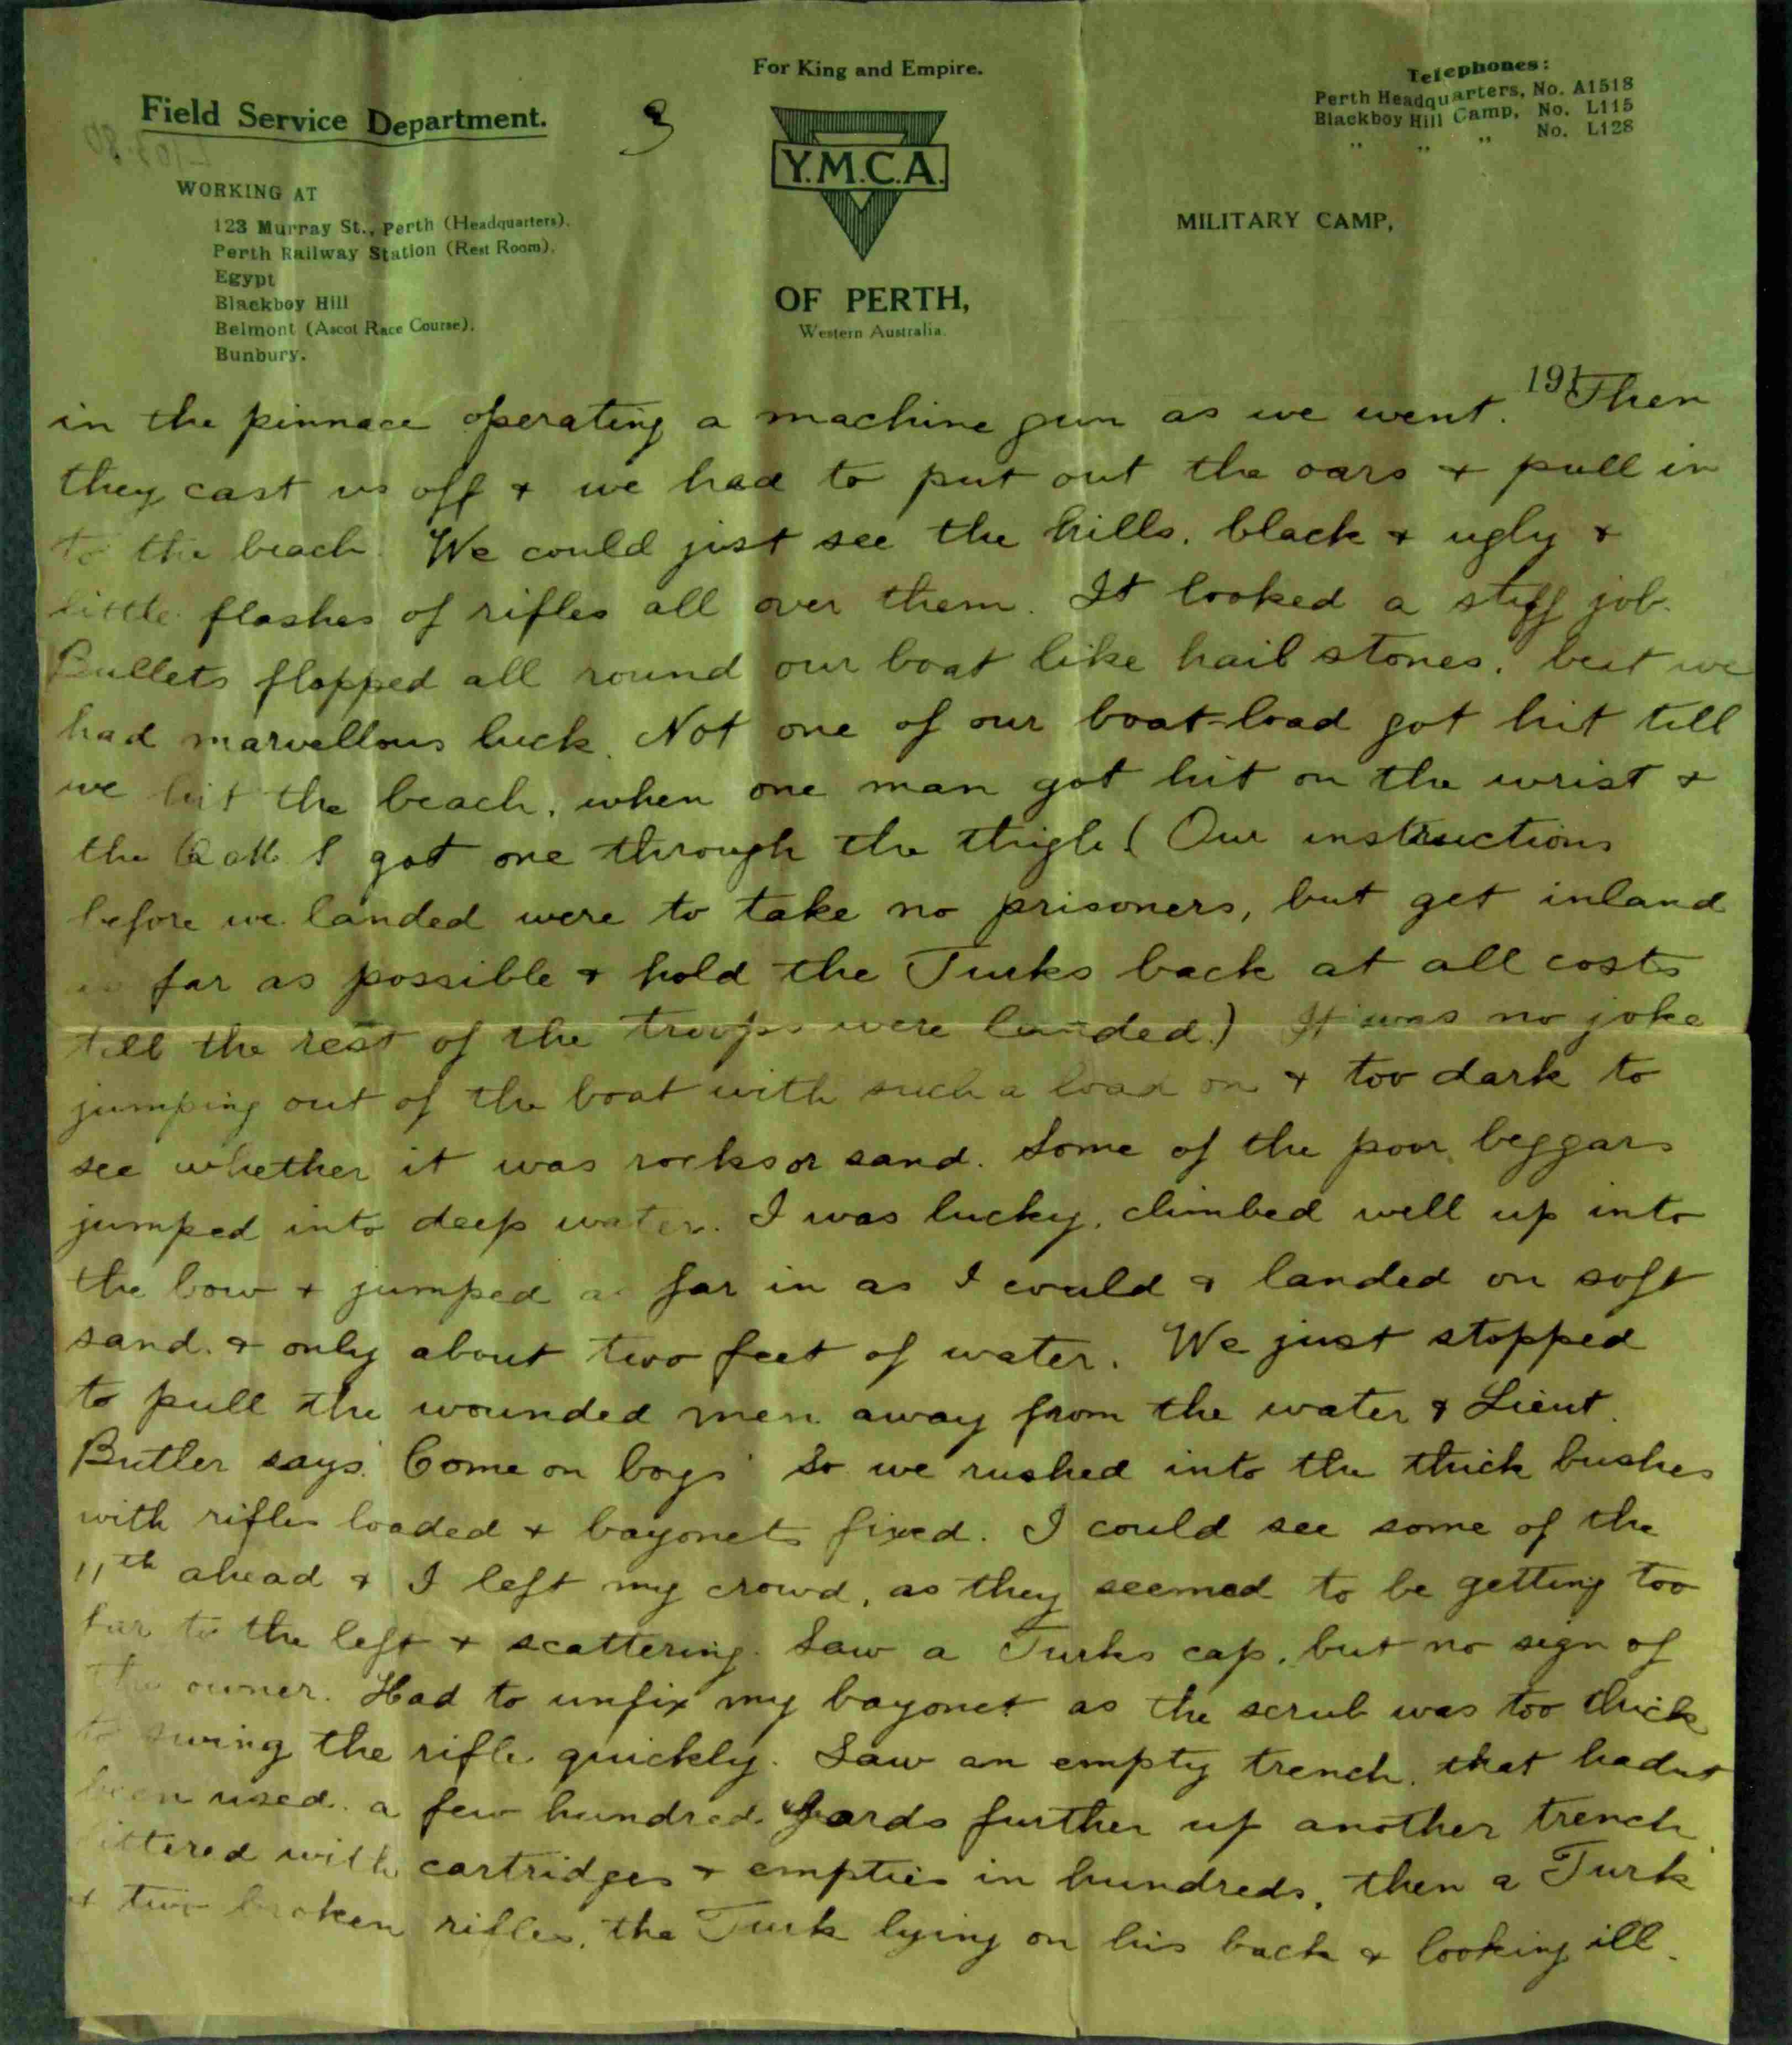 For King and Empire.
Field Service Department.
3
Telephones:
Perth Headquarters, No. A1518
Blackboy Hill Camp, No. L115
" " " No. L128
Y.M.C.A.
WORKING AT
123 Murray St., Perth (Headquarters).
Perth Railway Station (Rest Room).
Egypt
Blackboy Hill
Belmont (Ascot Race Course).
Bunbury.
MILITARY CAMP,
OF PERTH,
Western Australia.
191
in the pinnace operating a machine gun as we went. Then
they cast us off & we had to put out the oars & pull in
to the beach. We could just see the hills, black & ugly &
little flashes of rifles all over them. It looked a stiff job.
Bullets flopped all round our boat like hail stones, but we
had marvellous luck. Not one of our boat-load got hit till
we hit the beach, when one man got hit on the wrist &
the I got one through the thigh. (Our instructions
before we landed were to take no prisoners, but get inland
as far as possible & hold the Turks back at all costs
till the rest of the troops were landed.) It was no joke
jumping out of the boat with such a load on & too dark to
see whether it was rocks or sand. Some of the poor beggars
jumped into deep water. I was lucky, climbed well up into
the bow & jumped as far in as I could & landed on soft
sand. & only about two feet of water. We just stopped
to pull the wounded men away from the water & Lieut.
Butler says 'Come on boys' so we rushed into the thick bushes
with rifles loaded & bayonets fixed. I could see some of the
11th ahead & I left my crowd, as they seemed to be getting too
far to the left & scattering. Saw a Turks cap, but no sign of
the owner. Had to unfix my bayonet as the scrub was too thick
to swing the rifle quickly. Saw an empty trench, that hadnt
been used. a few hundred yards further up another trench
littered with cartridges & empties in hundreds, then a Turk
& two broken rifles, the Turk lying on his back & looking ill.